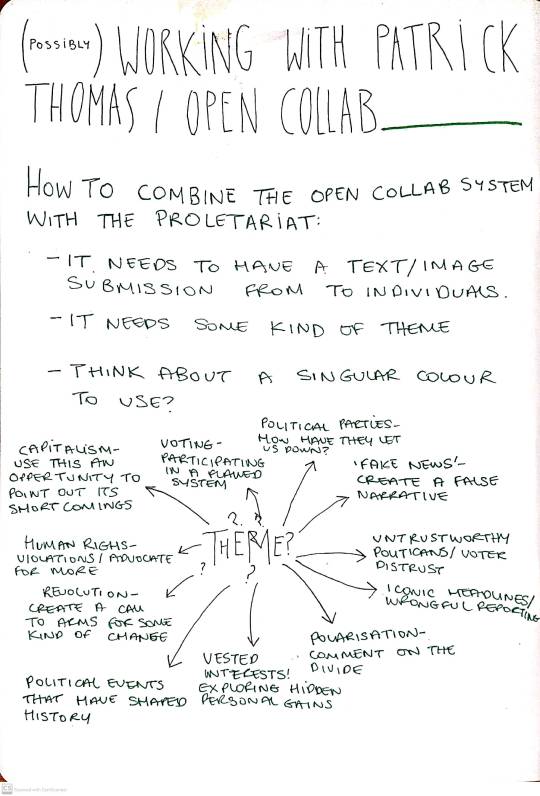 (POSSIBLY) WORKING WITH PATRICK
THOMAS / OPEN COLLAB
HOW TO COMBINE THE OPEN COLLAB SYSTEM
WITH THE PROLETARIAT:
- IT NEEDS TO HAVE A TEXT/IMAGE
SUBMISSION FROM TO INDIVIDUALS.
- IT NEEDS SOME KIND OF THEME
- THINK ABOUT A SINGULAR COLOUR
TO USE?
POLITICAL PARTIES-
HOW HAVE THEY LET
US DOWN?
VOTING-
PARTICIPATING
IN A FLAWED
SYSTEM
CAPITALISM-
USE THIS AN
OPPERTUNITY TO
POINT OUT ITS
SHORT COMINGS
'FAKE NEWS'-
CREATE A FALSE
NARRATIVE
? ?
THEME?
? ?
HUMAN RIGHS-
VIOLATIONS / ADVOCATE
FOR MORE
UNTRUSTWORTHY
POLITICANS/ VOTER
DISTRUST
REVOLUTION-
CREATE A CALL
TO ARMS FOR SOME
KIND OF CHANGE
ICONIC HEADLINES/
WRONGFUL REPORTING
POLARISATION-
COMMENT ON THE
DIVIDE
VESTED
INTERESTS!
EXPLORING HIDDEN
PERSONAL GAINS
POLITICAL EVENTS
THAT HAVE SHAPED
HISTORY
CS Scanned with CamScanner